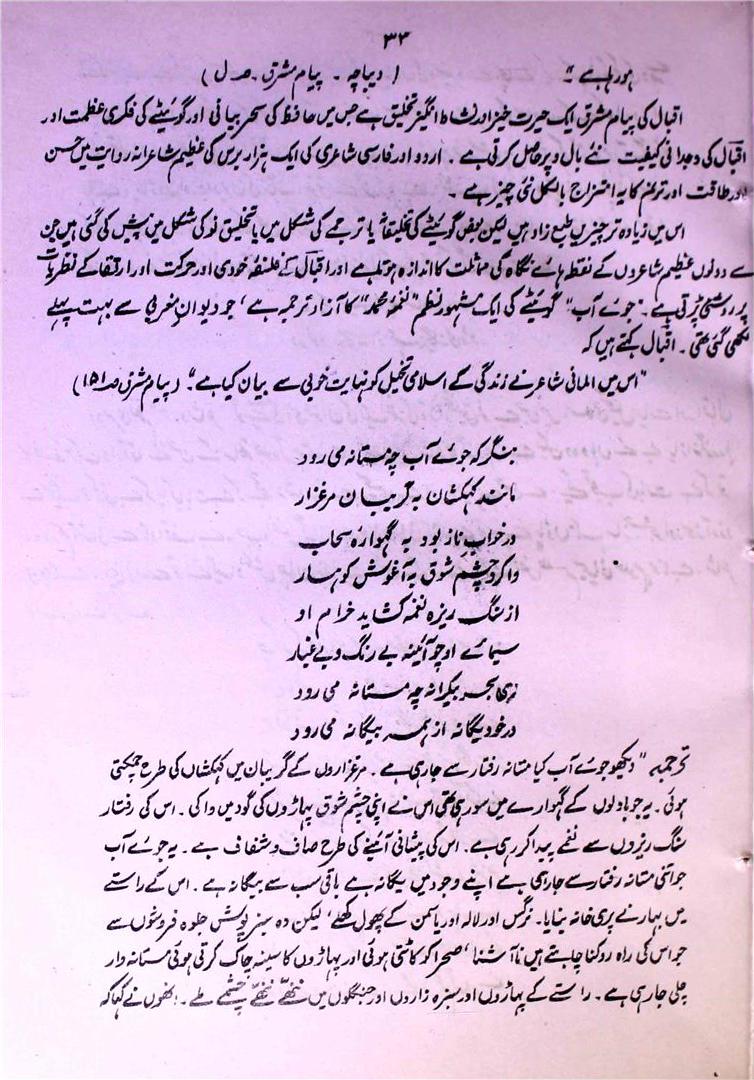 ۳۴
ہو رہا ہے“ (دیباچہ۔ پیام مشرق۔ صہ ل)
اقبال کی پیام مشرق ایک حیرت خیز اور نشاط انگیز تخلیق ہے جس میں حافظ کی سحر بیانی اور گوئیٹے کی فکری عظمت اور
اقبال کی وجدانی کیفیت نئے بال و پر حاصل کرتی ہے۔ اردو اور فارسی شاعری کی ایک ہزار برس کی عظیم شاعرانہ روایت میں حسن
اور طاقت اور ترنم کا یہ امتزاج بالکل نئی چیز ہے۔
اس میں زیادہ تر چیزیں طبع زاد ہیں لیکن بعض گوئیٹے کی تخلیقات یا ترجمے کی شکل میں یا تخلیق نو کی شکل میں پیش کی گئی ہیں جن
سے دونوں عظیم شاعروں کے نقطہ ہائے نگاہ کی مماثلت کا اندازہ ہوتا ہے اور اقبال کے فلسفۂ خودی اور حرکت اور ارتقا کے نظریات
پر روشنی پڑتی ہے۔ ”جوئے آب“ گوئیٹے کی ایک مشہور نظم ”نغمۂ محمد“ کا آزاد ترجمہ ہے، جو دیوان مغربی سے بہت پہلے
لکھی گئی تھی۔ اقبال کہتے ہیں کہ
”اس میں المانی شاعر نے زندگی کے اسلامی تخیل کو نہایت خوبی سے بیان کیا ہے۔“ (پیام مشرق صہ ۱۵۱)
بنگر کہ جوئے آب چہ مستانہ می رود
مانند کہکشاں بہ گریبان مرغزار
در خواب ناز بود بہ گہوارۂ سحاب
وا کرد چشم شوق بہ آغوش کوہسار
از سنگ ریزہ نغمہ کشاید خرام او
سیمائے او چو آئینہ بے رنگ و بے غبار
زی بحر بیکرانہ چہ مستانہ می رود
در خود یگانہ از ہمہ بیگانہ می رود
ترجمہ ”دیکھو جوئے آب کیا مستانہ رفتار سے جاری ہے۔ مرغزاروں کے گریبان میں کہکشاں کی طرح چمکتی
ہوئی۔ یہ جو بادلوں کے گہوارے میں سو رہی تھی اس نے اپنی چشم شوق پہاڑوں کی گود میں وا کی۔ اس کی رفتار
سنگ ریزوں سے نغمے پیدا کر رہی ہے۔ اس کی پیشانی آئینے کی طرح صاف و شفاف ہے۔ یہ جوئے آب
جو اتنی مستانہ رفتار سے جا رہی ہے اپنے وجود میں یگانہ ہے باقی سب سے بیگانہ ہے۔ اس کے راستے
میں بہار نے پری خانہ بنایا۔ نرگس اور لالہ اور یاسمن کے پھول کھلے، لیکن وہ سبز پوش جلوہ فروشوں سے
جو اس کی راہ روکنا چاہتے ہیں ناآشنا، صحرا کو کاٹتی ہوئی اور پہاڑوں کا سینہ چاک کرتی ہوئی مستانہ وار
چلی جا رہی ہے۔ راستے کے پہاڑوں اور سبزہ زاروں اور جنگلوں میں ننھے ننھے چشمے ملے۔ انھوں نے کہا کہ